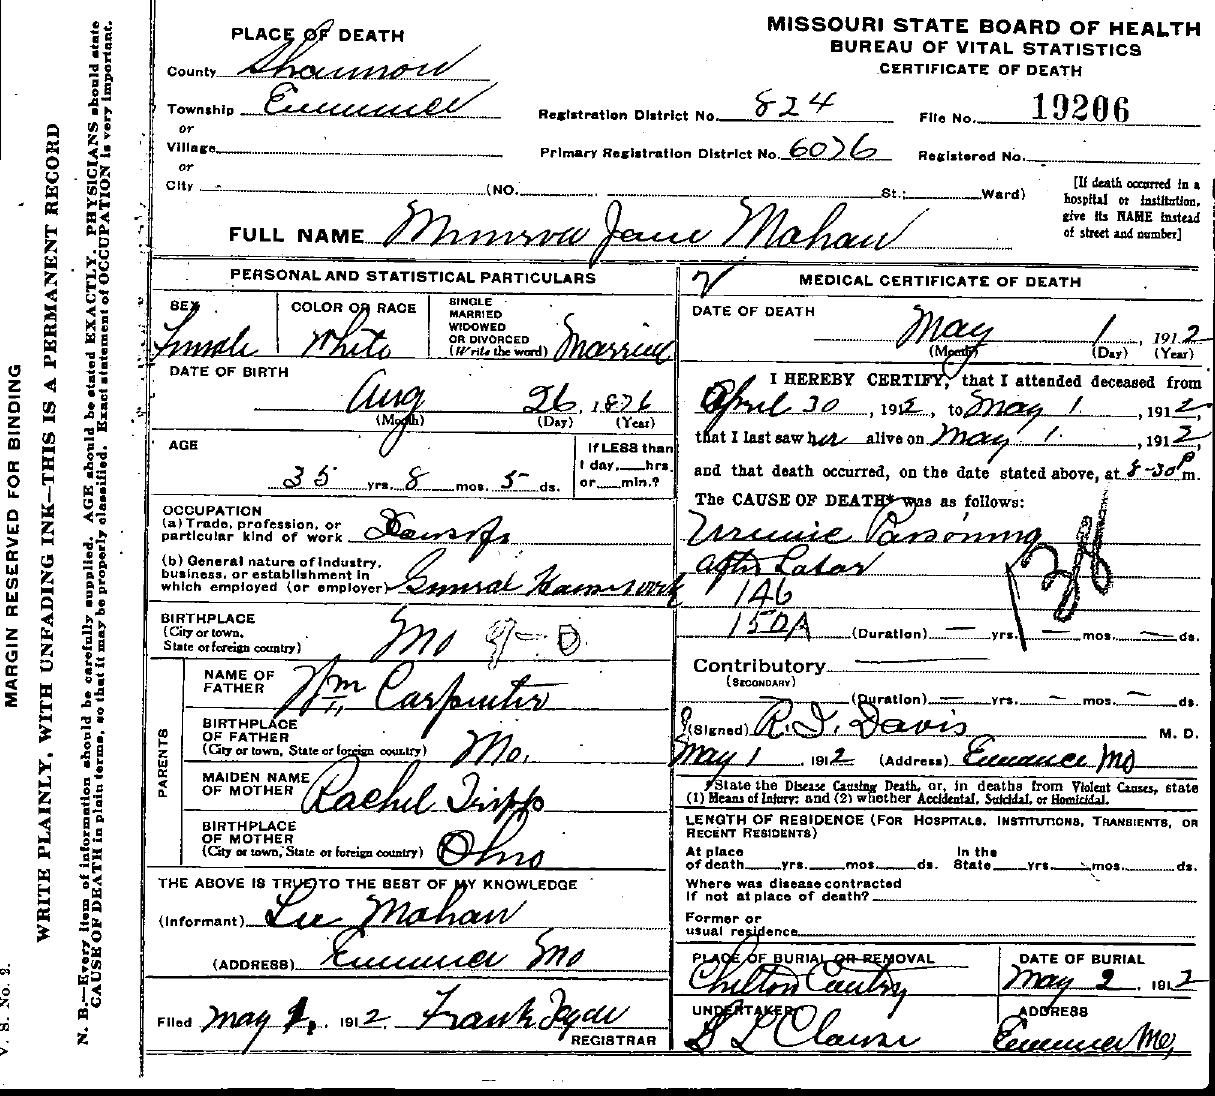 MISSOURI STATE BOARD OF HEALTH
BUREAU OF VITAL STATISTICS
CERTIFICATE OF DEATH
PLACE OF DEATH
County Shannon
Township Eminence
or
Village
or
City (NO. St.; Ward)
Registration District No. 824
File No. 19206
Primary Registration District No. 6026
Registered No.
[If death occurred in a
hospital or institution,
give its NAME instead
of street and number]
FULL NAME Minerva Jane Mahan
PERSONAL AND STATISTICAL PARTICULARS
SEX
Female
COLOR OR RACE
White
SINGLE
MARRIED
WIDOWED
OR DIVORCED
(Write the word) Married
DATE OF BIRTH
Aug 26, 1876
(Month) (Day) (Year)
AGE
35 yrs. 8 mos. 5 ds.
If LESS than
1 day, hrs.
or min.?
OCCUPATION
(a) Trade, profession, or
particular kind of work
(b) General nature of industry,
business, or establishment in
which employed (or employer) General Housework
BIRTHPLACE
(City or town,
State or foreign country)
Mo
PARENTS
NAME OF
FATHER Wm Carpenter
BIRTHPLACE
OF FATHER
(City or town, State or foreign country) Mo.
MAIDEN NAME
OF MOTHER Rachel Tripp
BIRTHPLACE
OF MOTHER
(City or town, State or foreign country) Ohio
THE ABOVE IS TRUE TO THE BEST OF MY KNOWLEDGE
(Informant) Lee Mahan
(ADDRESS) Eminence Mo
Filed May 1, 1912 Frank
REGISTRAR
MEDICAL CERTIFICATE OF DEATH
DATE OF DEATH
May 1, 1912
(Month) (Day) (Year)
I HEREBY CERTIFY, that I attended deceased from
April 30, 1912, to May 1, 1912,
that I last saw her alive on May 1, 1912,
and that death occurred, on the date stated above, at 8-30 P m.
The CAUSE OF DEATH* was as follows:
Uremic Poisoning
after Labor
146
150A
(Duration) — yrs. — mos. — ds.
Contributory
(SECONDARY)
(Duration) — yrs. — mos. — ds.
(Signed) R. I. Davis M. D.
May 1 1912 (Address) Eminence Mo
*State the Disease Causing Death, or, in deaths from Violent Causes, state
(1) Means of Injury; and (2) whether Accidental, Suicidal, or Homicidal.
LENGTH OF RESIDENCE (FOR HOSPITALS, INSTITUTIONS, TRANSIENTS, OR
RECENT RESIDENTS)
At place
of death yrs. mos. ds.
In the
State yrs. mos. ds.
Where was disease contracted
If not at place of death?
Former or
usual residence
PLACE OF BURIAL OR REMOVAL
Chilton Cemetery
DATE OF BURIAL
May 2, 1912
UNDERTAKER
S L
ADDRESS
Eminence Mo,
MARGIN RESERVED FOR BINDING
WRITE PLAINLY, WITH UNFADING INK—THIS IS A PERMANENT RECORD
N. B.—Every item of information should be carefully supplied. AGE should be stated EXACTLY. PHYSICIANS should state
CAUSE OF DEATH in plain terms, so that it may be properly classified. Exact statement of OCCUPATION is very important.
V. S. No. 2.